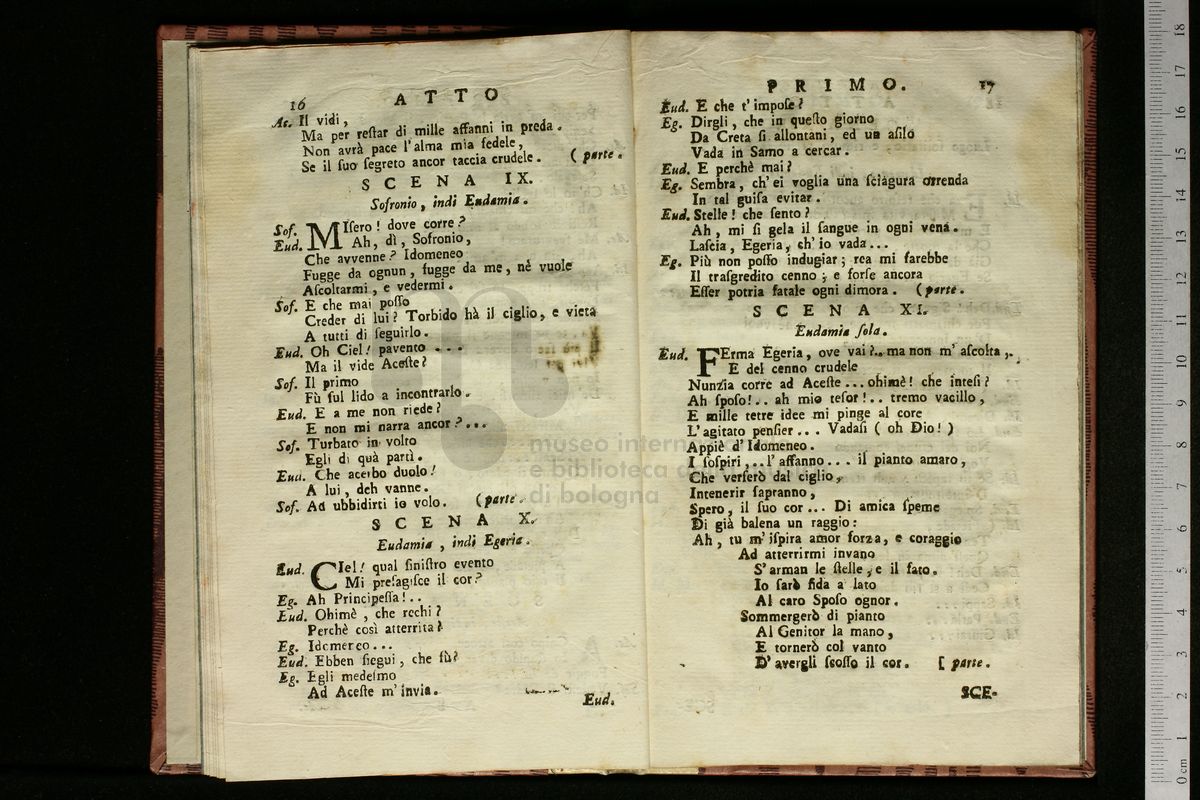 16 ATTO
Ac. Il vidi,
Ma per reſtar di mille affanni in preda.
Non avrà pace l'alma mia fedele,
Se il ſuo ſegreto ancor taccia crudele. (parte.
SCENA IX.
Sofronio, indi Eudamia.
Sof. MIſero! dove corre?
Eud. Ah, dì, Sofronio,
Che avvenne? Idomeneo
Fugge da ognun, fugge da me, nè vuole
Aſcoltarmi, e vedermi.
Sof. E che mai poſſo
Creder di lui? Torbido hà il ciglio, e vieta
A tutti di ſeguirlo.
Eud. Oh Ciel! pavento ...
Ma il vide Aceſte?
Sof. Il primo
Fù ſul lido a incontrarlo.
Eud. E a me non riede?
E non mi narra ancor?...
Sof. Turbato in volto
Egli di quà partì.
Eud. Che acerbo duolo!
A lui, deh vanne.
Sof. Ad ubbidirti io volo. (parte.
SCENA X.
Eudamia, indi Egeria.
Eud. CIel! qual ſiniſtro evento
Mi preſagiſce il cor?
Eg. Ah Principeſſa!..
Eud. Ohimè, che rechi?
Perchè così atterrita?
Eg. Idomereo...
Eud. Ebben ſiegui, che fù?
Eg. Egli medeſmo
Ad Aceſte m'invia.
Eud.
PRIMO. 17
Eud. E che t'impoſe?
Eg. Dirgli, che in queſto giorno
Da Creta ſi allontani, ed un aſilo
Vada in Samo a cercar.
Eud. E perchè mai?
Eg. Sembra, ch'ei voglia una ſciagura orrenda
In tal guiſa evitar.
Eud. Stelle! che ſento?
Ah, mi ſi gela il ſangue in ogni vena.
Laſcia, Egeria, ch'io vada...
Eg. Più non poſſo indugiar; rea mi farebbe
Il traſgredito cenno; e forſe ancora
Eſſer potria fatale ogni dimora. (parte.
SCENA XI.
Eudamia ſola.
Eud. FErma Egeria, ove vai?.. ma non m'aſcolta,.
E del cenno crudele
Nunzia corre ad Aceſte... ohimè! che inteſi?
Ah ſpoſo!.. ah mio teſor!.. tremo vacillo,
E mille tetre idee mi pinge al core
L'agitato penſier... Vadaſi (oh Dio!)
Appiè d'Idomeneo.
I ſoſpiri,.. l'affanno... il pianto amaro,
Che verſerò dal ciglio,
Intenerir ſapranno,
Spero, il ſuo cor... Di amica ſpeme
Di già balena un raggio:
Ah, tu m'iſpira amor forza, e coraggio
Ad atterrirmi invano
S'arman le ſtelle, e il fato.
Io ſarò fida a lato
Al caro Spoſo ognor.
Sommergerò di pianto
Al Genitor la mano,
E tornerò col vanto
D'avergli ſcoſſo il cor. [parte.
SCE-
museo intern
e biblioteca d
di bologna
0 cm 1 2 3 4 5 6 7 8 9 10 11 12 13 14 15 16 17 18